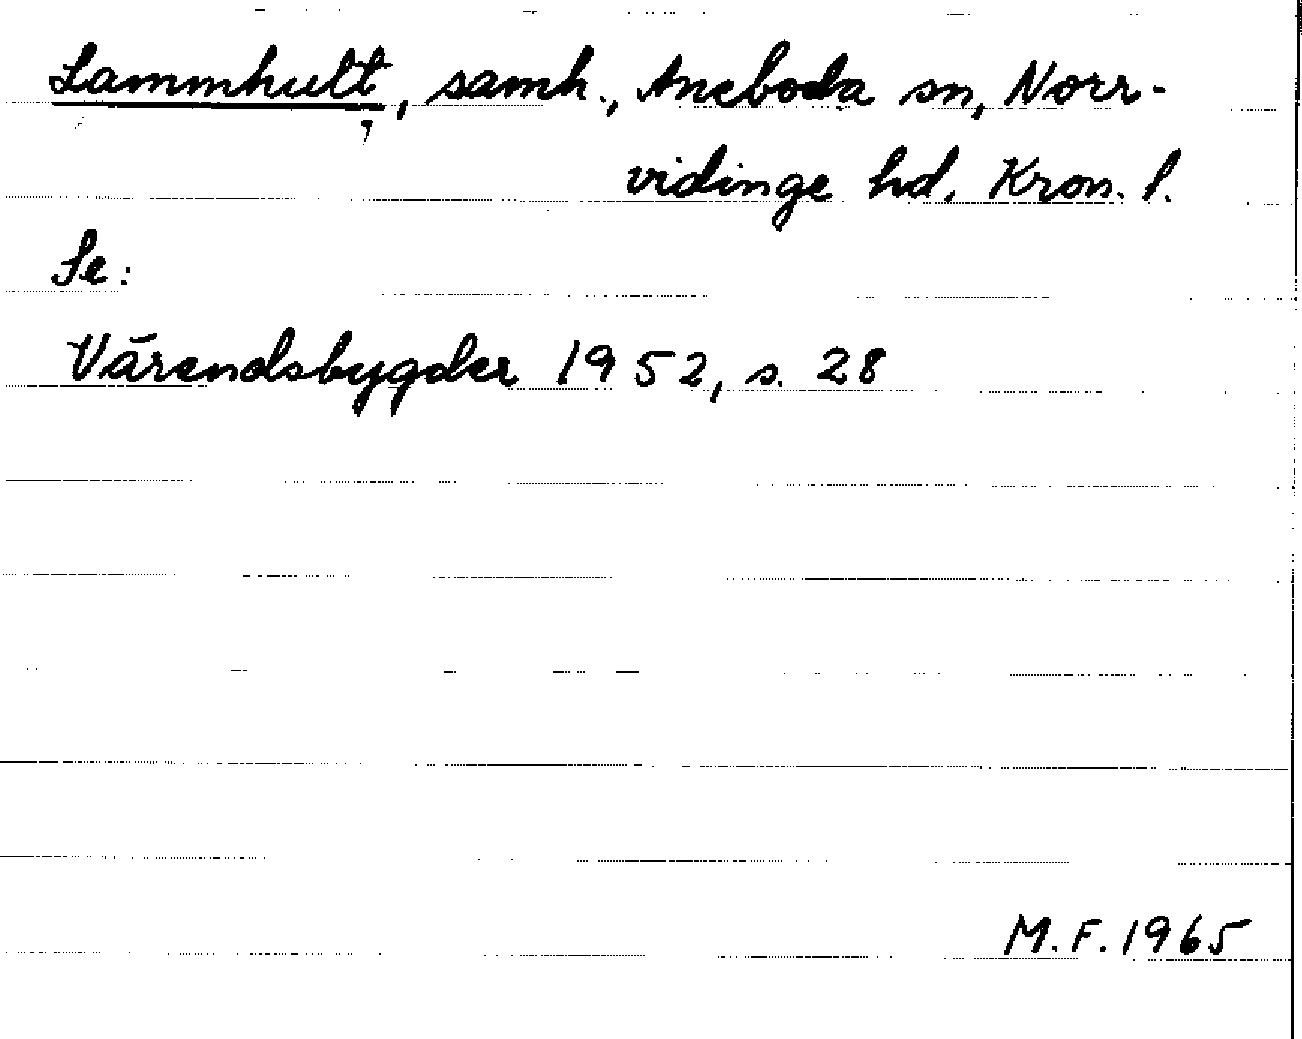 Lammhult, samh., Aneboda sn, Norr-
vidinge hd. Kron. l.
Se:
Värendsbygder 1952, s. 28
M.F. 1965